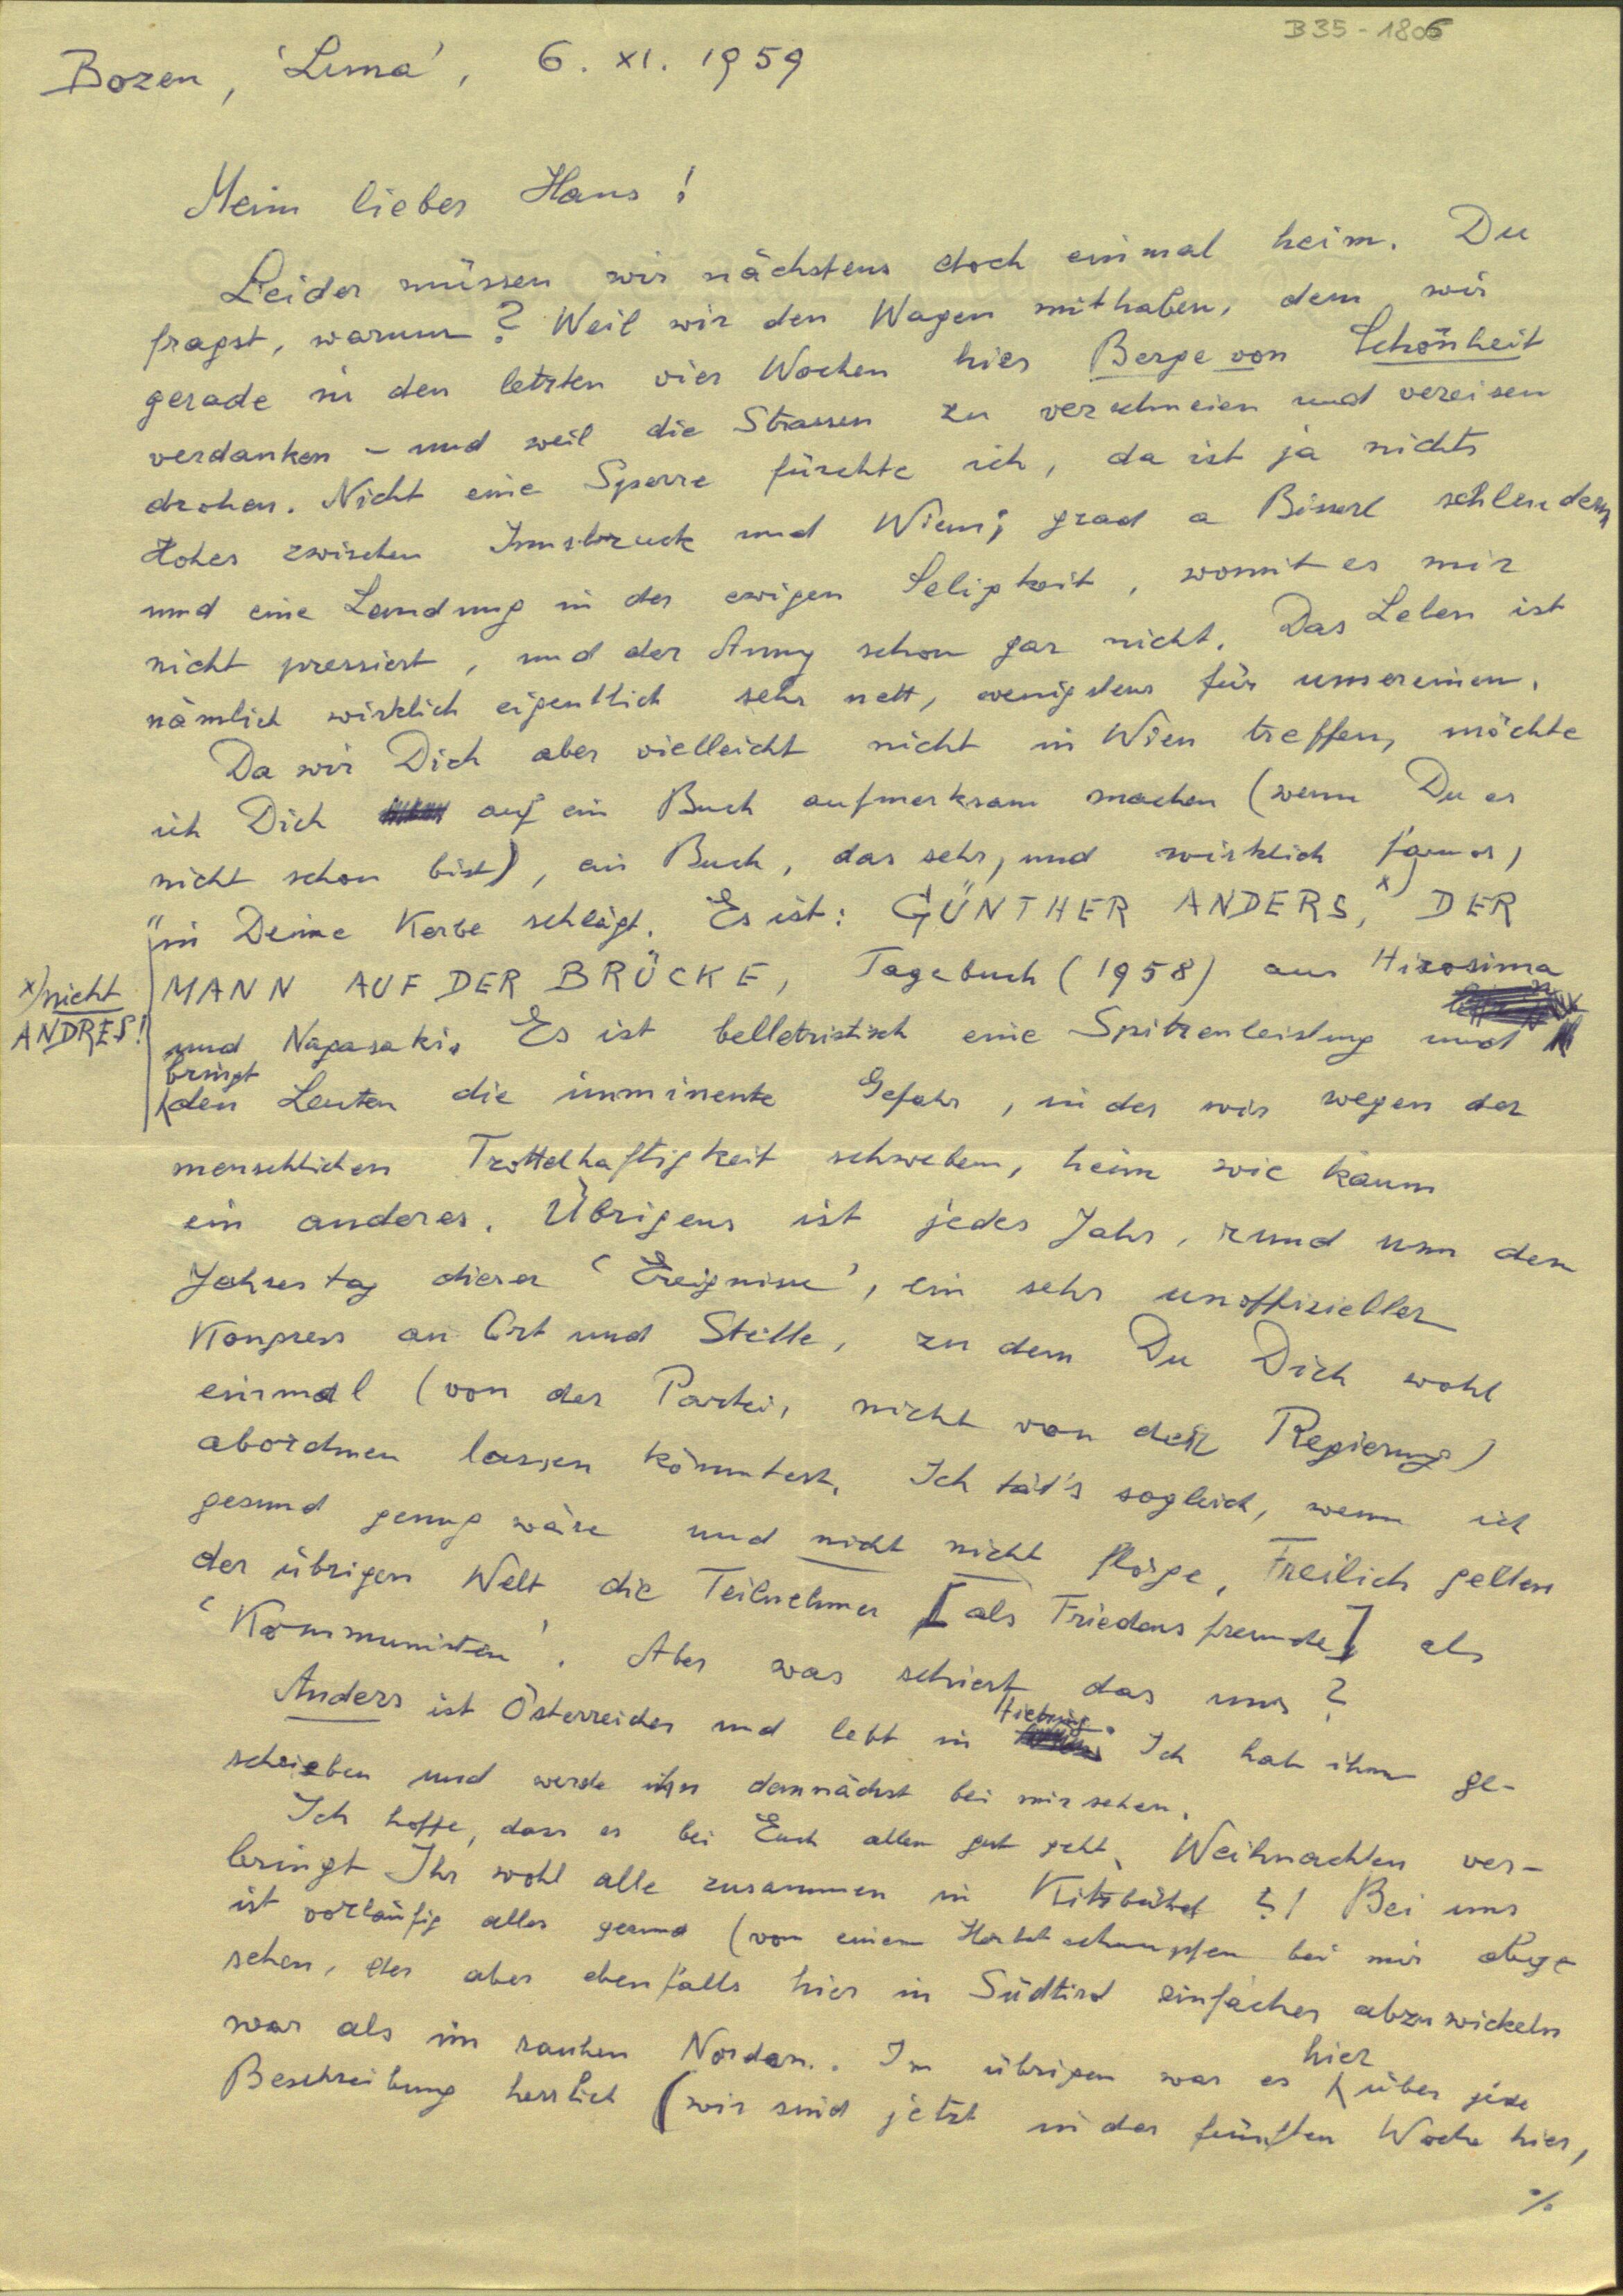 B35-1806
Bozen, 'Luna', 6. XI. 1959
Mein lieber Hans!
Leider müssen wir nächstens doch einmal heim. Du
fragst, warum? Weil wir den Wagen mithaben, dem wir
gerade in den letzten vier Wochen hier Berge von Schönheit
verdanken – und weil die Strassen zu verschneien und vereisen
drohen. Nicht eine Sperre fürchte ich, da ist ja nichts
Hohes zwischen Innsbruck und Wien; grad a Bisserl schleudern
und eine Landung in der ewigen Seligkeit, womit es mir
nicht pressiert, und der Anny schon gar nicht. Das Leben ist
nämlich wirklich eigentlich sehr nett, wenigstens für unsereinen.
Da wir Dich aber vielleicht nicht in Wien treffen, möchte
ich Dich auf ein Buch aufmerksam machen (wenn Du es
nicht schon bist), ein Buch, das sehr, und wirklich famos,
in Deine Kerbe schlägt. Es ist: GÜNTHER ANDERS, x) DER
MANN AUF DER BRÜCKE, Tagebuch (1958) aus Hirosima
x) nicht
ANDRES!
und Nagasaki. Es ist belletristisch eine Spitzenleistung und
bringt
den Leuten die imminente Gefahr, in der wir wegen der
menschlichen Trottelhaftigkeit schweben, heim wie kaum
ein anderes. Übrigens ist jedes Jahr, rund um den
Jahrestag dieser 'Ereignisse', ein sehr unoffizieller
Kongress an Ort und Stelle, zu dem Du Dich wohl
einmal (von der Partei, nicht von der Regierung)
abordnen lassen könntest. Ich tät's sogleich, wenn ich
gesund genug wäre und nicht nicht flöge. Freilich gelten
der übrigen Welt die Teilnehmer [als Friedensfreunde] als
'Kommunisten'. Aber was schiert das uns?
Anders ist Österreicher und lebt in Hietzing. Ich hab ihm ge-
schrieben und werde ihn demnächst bei mir sehen.
Ich hoffe, dass es bei Euch allen gut geht. Weihnachten ver-
bringt Ihr wohl alle zusammen in Kitzbühel?! Bei uns
ist vorläufig alles gesund (von einem schnupfen bei mir abge-
sehen, der aber ebenfalls hier in Südtirol einfacher abzuwickeln
war als im rauhen Norden.. Im übrigen war es hier über jede
Beschreibung herrlich (wir sind jetzt in der fünften Woche hier,
%